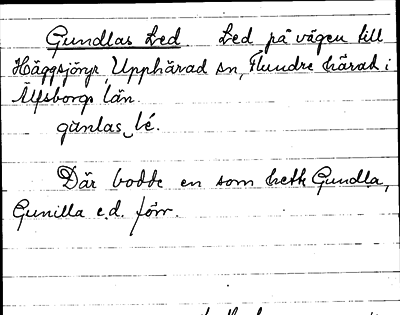 Gundlas Led. Led på vägen till
Häggsjöryr, Upphärad sn, Flundre härad i
Älfsborgs län.
gunlas lé.
Där bodde en som hette Gundla,
Gunilla e.d. förr.